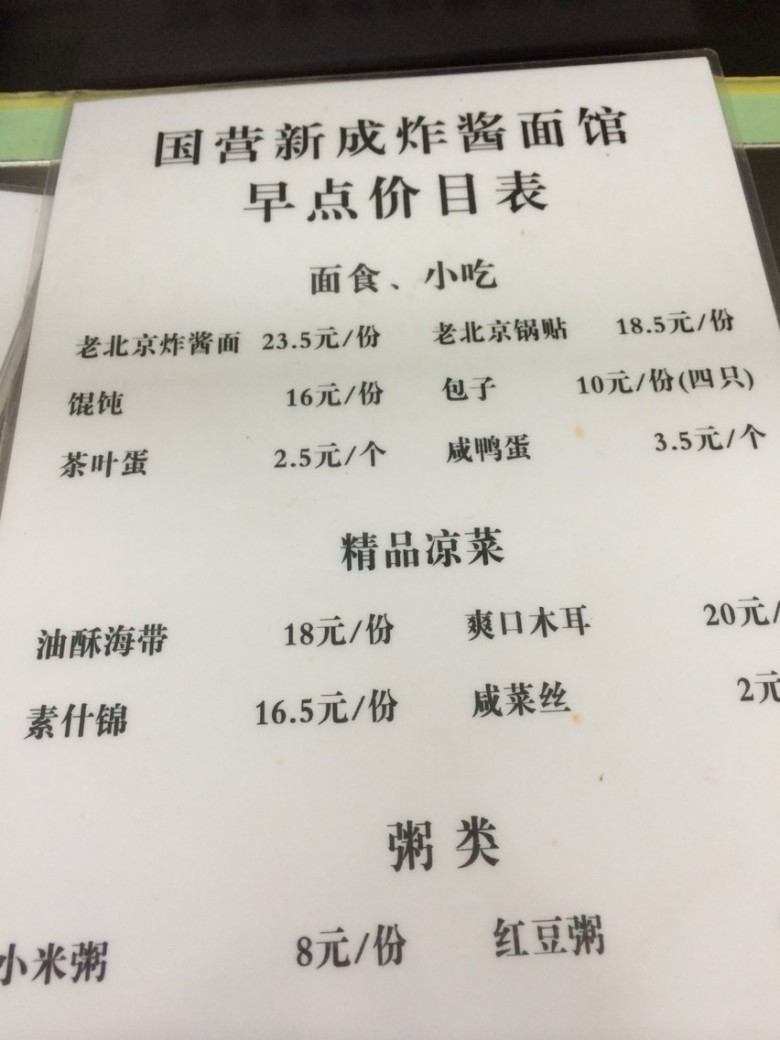 国营新成炸酱面馆
早点价目表
面食、小吃
老北京炸酱面 23.5元/份 老北京锅贴 18.5元/份
馄饨 16元/份 包子 10元/份(四只)
茶叶蛋 2.5元/个 咸鸭蛋 3.5元/个
精品凉菜
油酥海带 18元/份 爽口木耳 20元/
素什锦 16.5元/份 咸菜丝 2元
粥类
小米粥 8元/份 红豆粥